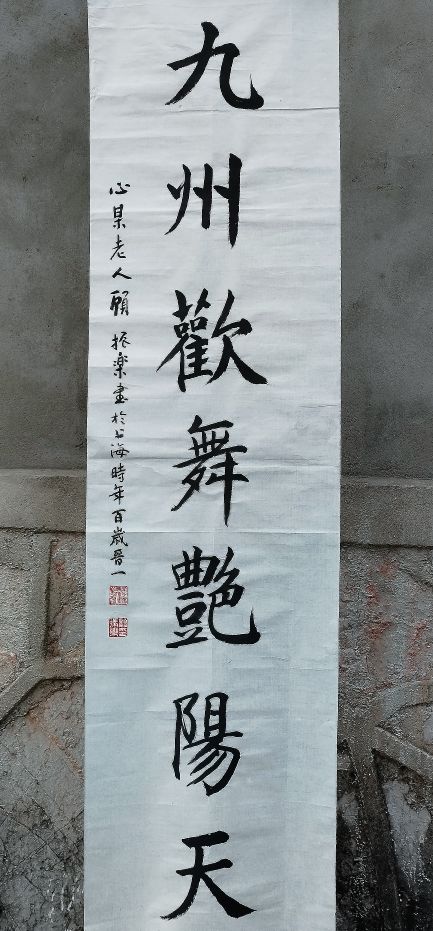 九州歡舞艷陽天
心杲老人顧振樂書於上海時年百歲晉一